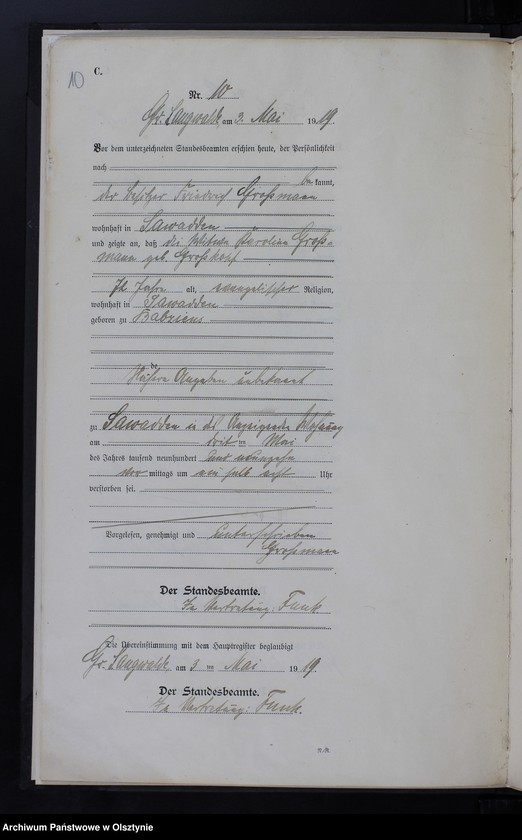 10
C.
Nr. 10
Gr. Langwalde am 3. Mai 1919.
Vor dem unterzeichneten Standesbeamten erschien heute, der Persönlichkeit
nach
be kannt,
der Besitzer Friedrich Großmann
wohnhaft in Sawadden
und zeigte an, daß die Karoline Groß-
mann geb. Großkopf
Jahre alt, evangelischer Religion,
wohnhaft in Sawadden
geboren zu Babziens
Nähere Angaben unbekannt
zu Sawadden in des Anzeigenden Wohnung
am drei ten Mai
des Jahres tausend neunhundert und neunzehn
vor mittags um ein halb acht Uhr
verstorben sei.
Vorgelesen, genehmigt und unterschrieben
Großmann
Der Standesbeamte.
In Vertretung: Funk
Die Übereinstimmung mit dem Hauptregister beglaubigt
Gr. Langwalde am 3 ten Mai 1919.
Der Standesbeamte.
In Vertretung: Funk.
Archiwum Państwowe w Olsztynie